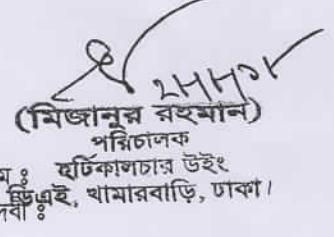 (মিজানুর রহমান)
পরিচালক
হর্টিকালচার উইং
ডিএই, খামারবাড়ি, ঢাকা।